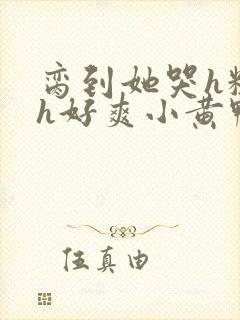 脔到她哭h粗
h好爽小黄鸭
伍真由